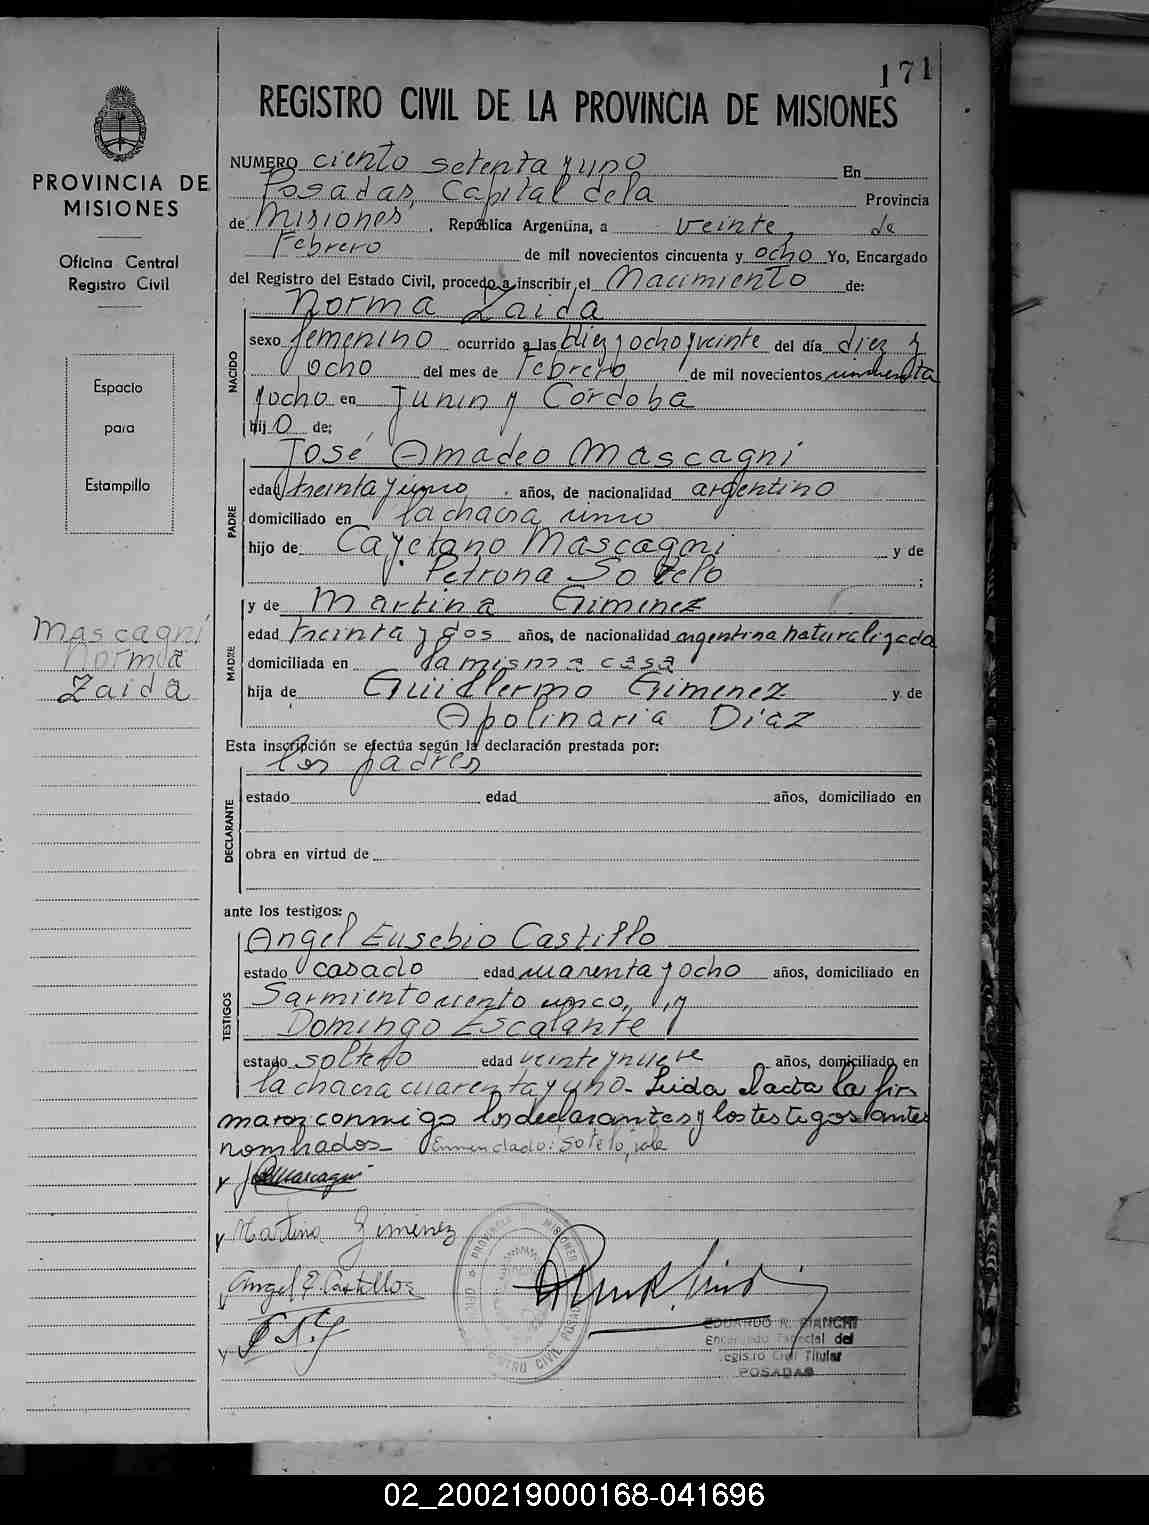 171
REGISTRO CIVIL DE LA PROVINCIA DE MISIONES
PROVINCIA DE
MISIONES
Oficina Central
Registro Civil
Espacio
para
Estampilla
Mascagni
Norma
Zaida
NUMERO ciento setenta y uno En
Posadas, Capital de la Provincia
de Misiones, República Argentina, a veinte, de
Febrero de mil novecientos cincuenta y ocho Yo, Encargado
del Registro del Estado Civil, procedo a inscribir el Nacimiento de:
NACIDO
Norma Zaida
sexo femenino ocurrido a las diez y ocho y veinte del día diez y
ocho del mes de Febrero, de mil novecientos cincuenta
y ocho en Junin y Córdoba
hijo de:
PADRE
José Amadeo Mascagni
edad treinta y cinco, años, de nacionalidad argentino
domiciliado en la chacra cinco
hijo de Cayetano Mascagni y de
Petrona Sotelo ;
MADRE
y de Martina Gimenez
edad treinta y dos años, de nacionalidad argentina naturalizada
domiciliada en la misma casa
hija de Guillermo Gimenez y de
Apolinaria Diaz
Esta inscripción se efectúa según la declaración prestada por:
los padres
DECLARANTE
estado edad años, domiciliado en
obra en virtud de
ante los testigos:
TESTIGOS
Angel Eusebio Castillo
estado casado edad cuarenta y ocho años, domiciliado en
Sarmiento ciento cinco, y
Domingo Escalante
estado soltero edad veinte y nueve años, domiciliado en
la chacra cuarenta y uno- Leida el acta la fir
maron conmigo los declarantes y los testigos antes
nombrados- Enmendado: Sotelo, vale
Martina Gimenez
Angel E. Castillo
PROVINCIA MISIONES
REGISTRO CIVIL POSADAS
EDUARDO R. BIANCHI
Encargado Especial del
Registro Civil Titular
POSADAS
02_200219000168-041696